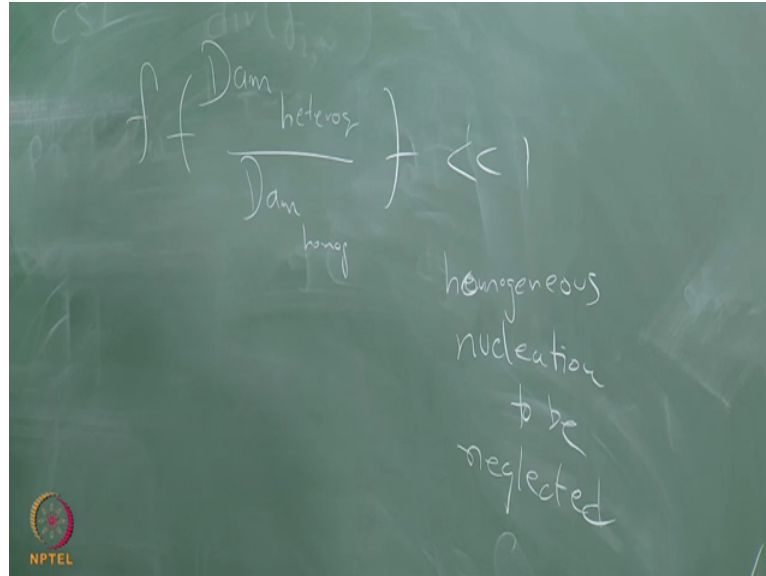 f { Dam heterog / Dam homog } << 1
homogeneous
nucleation
to be
neglected
NPTEL